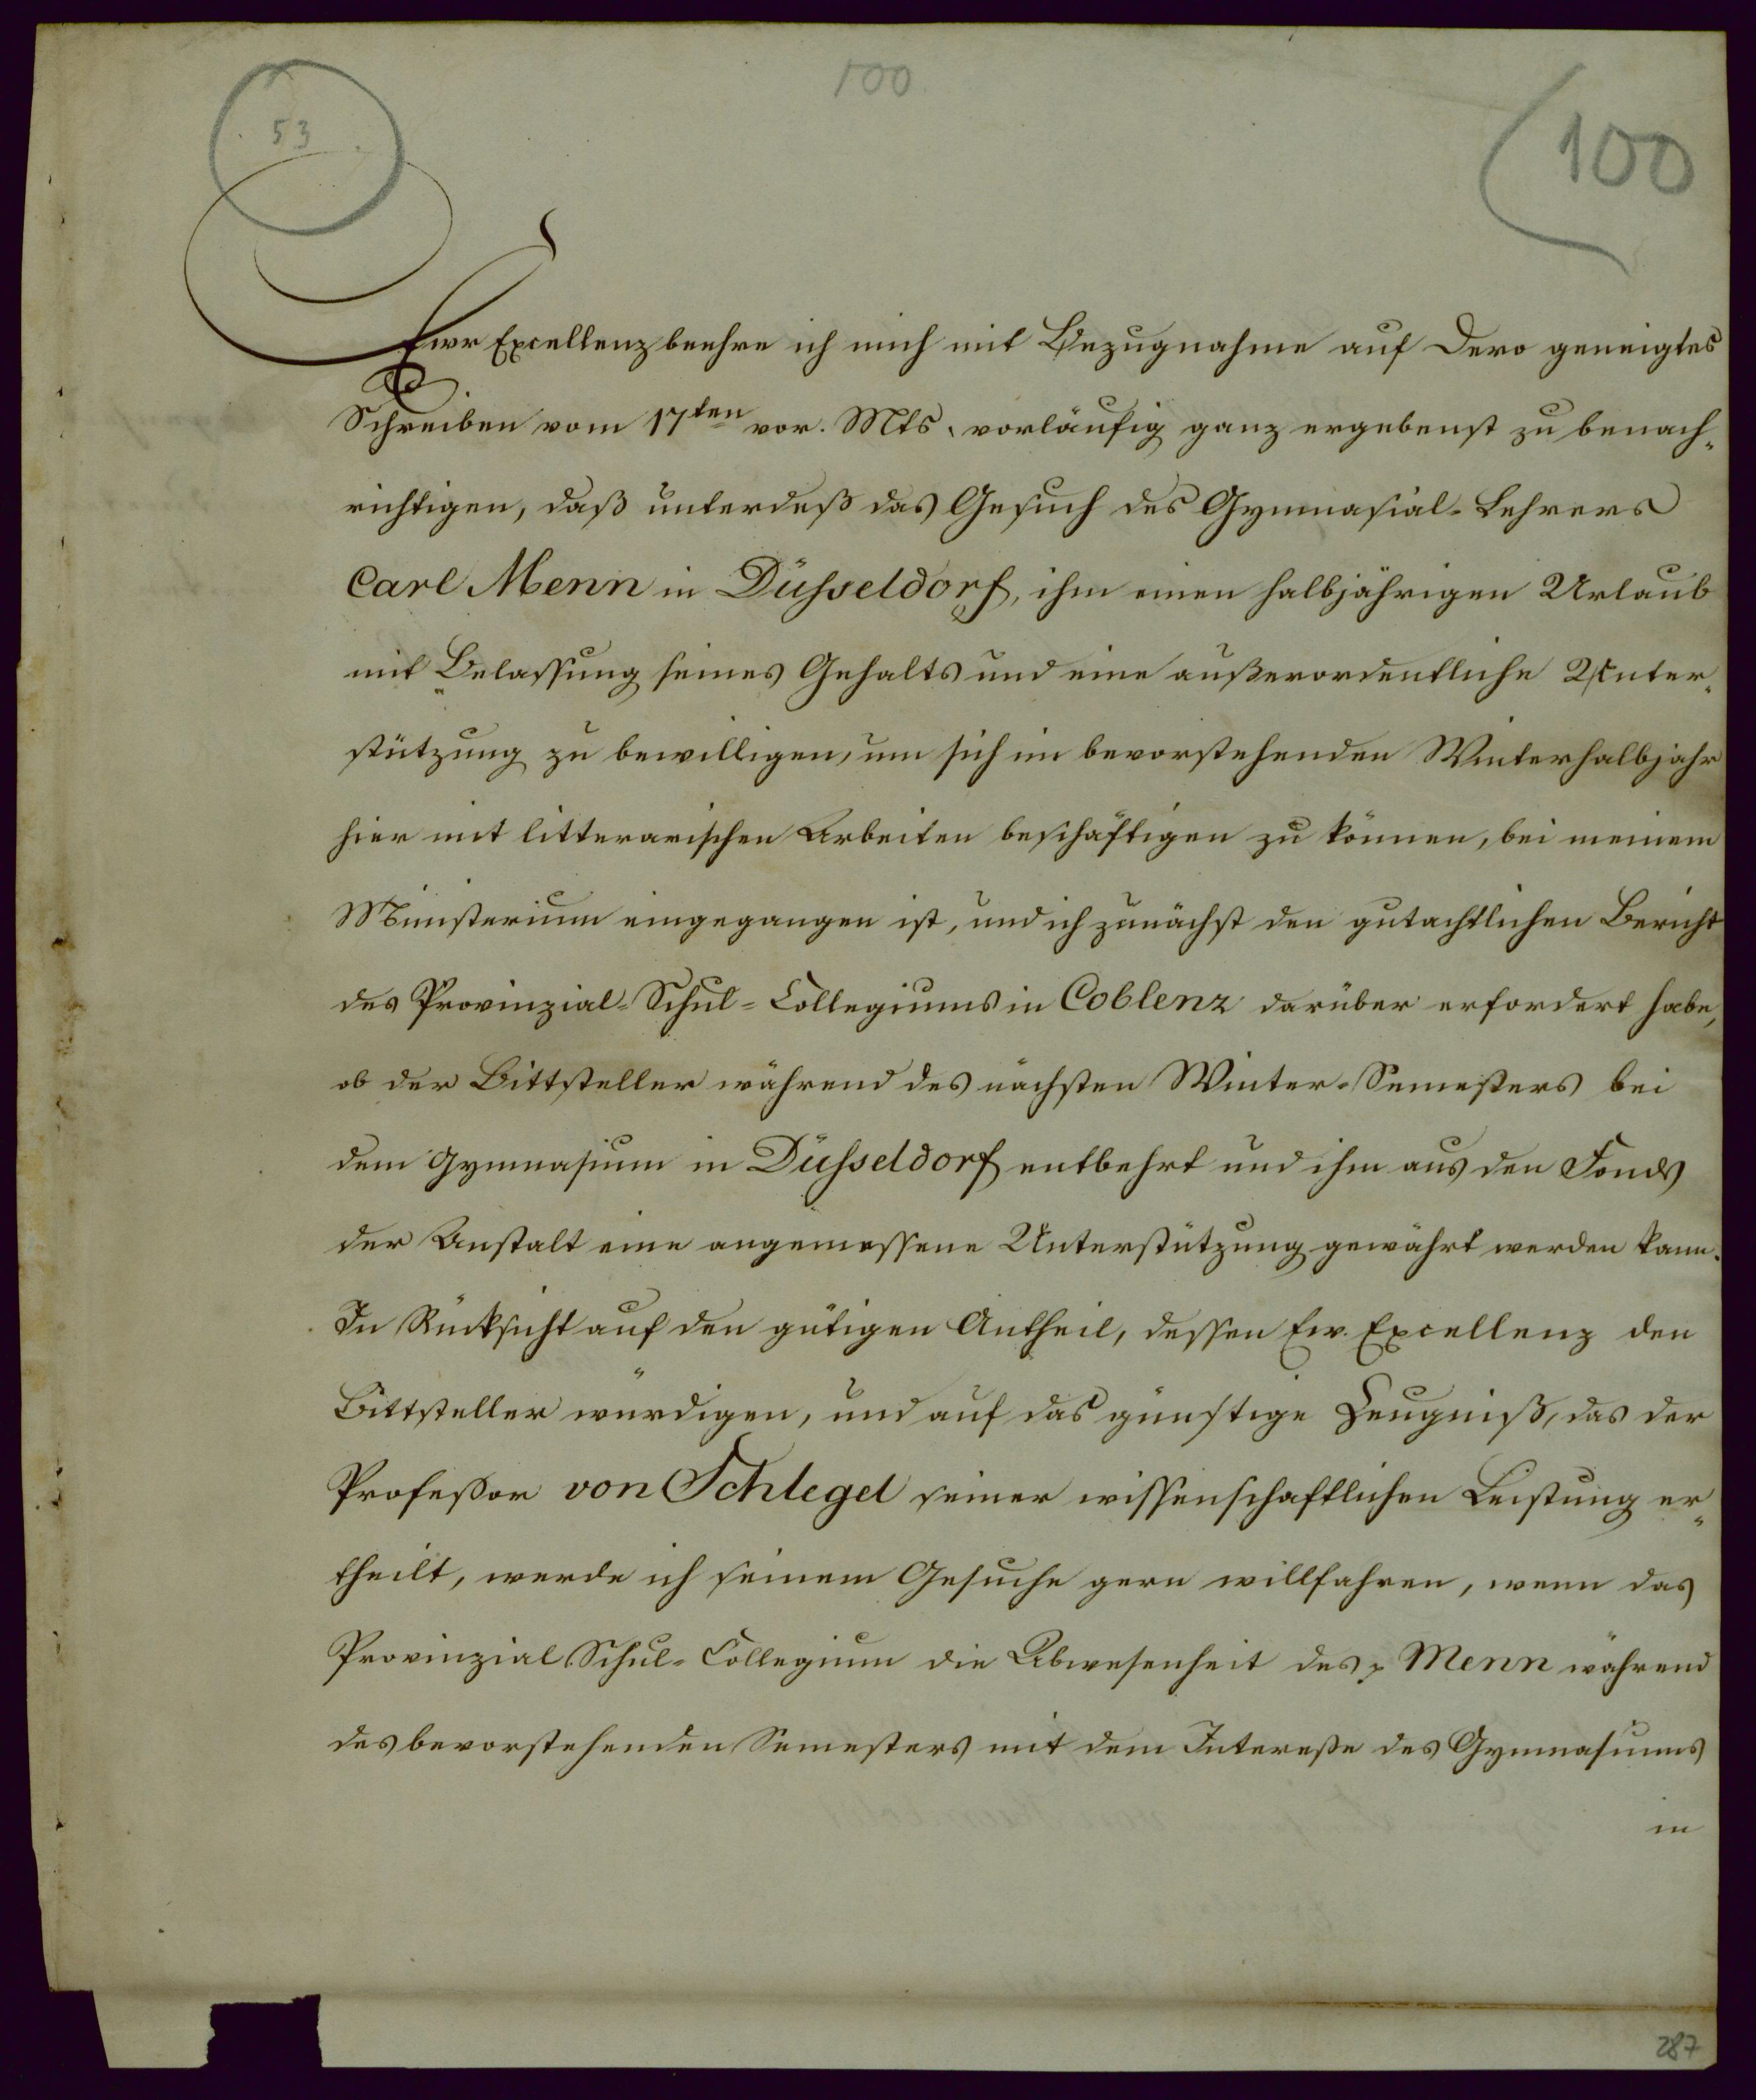 53
100
100
Ewr Excellenz beehre ich mich mit Bezugnahme auf Dero geneigtes
Schreiben vom 17ten vor. Mts. vorläufig ganz ergebenst zu benach-
richtigen, daß unterdeß das Gesuch des Gymnasial-Lehrers
Carl Menn in Düsseldorf, ihm einen halbjährigen Urlaub
mit Belassung seines Gehalts und eine außerordentliche Unter-
stützung zu bewilligen, um sich im bevorstehenden Winterhalbjahr
hier mit litterarischen Arbeiten beschäftigen zu können, bei meinem
Ministerium eingegangen ist, und ich zunächst den gutachtlichen Bericht
des Provinzial-Schul-Collegiums in Coblenz darüber erfordert habe,
ob der Bittsteller während des nächsten Winter-Semesters bei
dem Gymnasium in Düsseldorf entbehrt und ihm aus den Fonds
der Anstalt eine angemessene Unterstützung gewährt werden kann.
In Rücksicht auf den gütigen Antheil, dessen Ew. Excellenz den
Bittsteller würdigen, und auf das günstige Zeugniß, das der
Professor von Schlegel seiner wissenschaftlichen Leistung er-
theilt, werde ich seinem Gesuche gern willfahren, wenn das
Provinzial Schul-Collegium die Abwesenheit des Menn während
des bevorstehenden Semesters mit dem Interesse des Gymnasiums
in
287